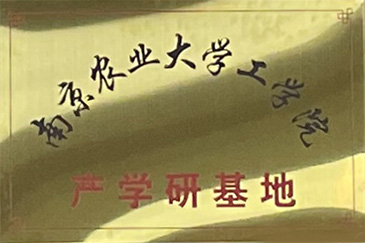 南京农业大学工学院
产学研基地